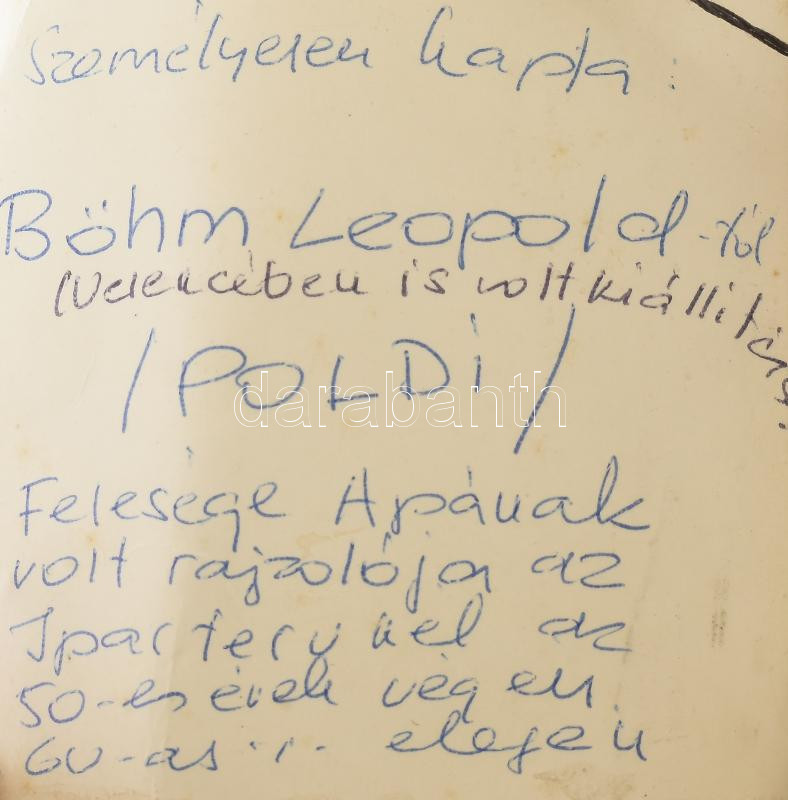 Személyesen kapta:
Böhm Leopold-tól
(Velencében is volt kiállítása!
/POLDI/
darabanth
Felesége Apának
volt rajzolója az
Iparterv nél az
50-es évek végén
60-as ... elején